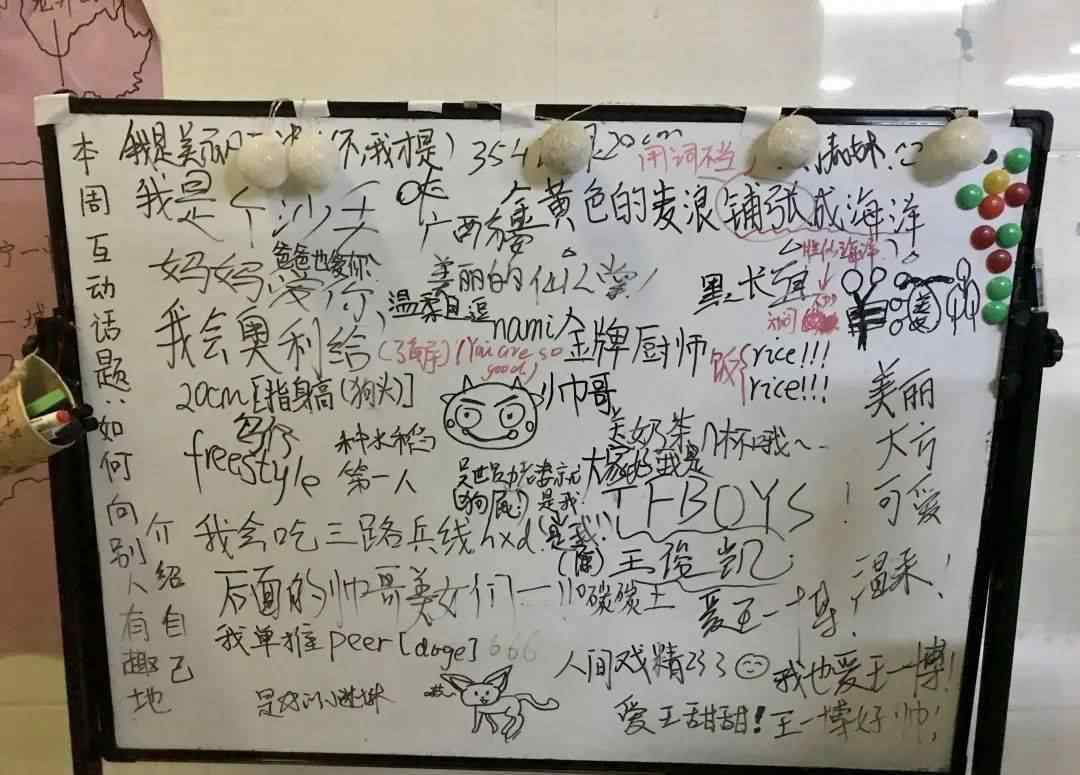 本周互动话题：如何向别人有趣地
介绍自己
我是美丽
(不，我才是)
354
20cm
用词不当
我是个沙子
广西
金黄色的麦浪铺张成海洋
妈妈爱你
爸爸也爱你
美丽的仙人掌！
黑长直
我会奥利给
温柔且逗
(You are so good)
nami
金牌厨师
饭{rice!!!
rice!!!
20cm[指身高(狗头)]
帅哥
美丽
大方
可爱
温柔！
freestyle
种水稻
第一人
关奶茶几杯哦～~
大家好我是
TFBOYS！
(狗屁!)
是我!
我会吃三路兵线hxd
是我!!
王俊凯
后面的帅哥美女们
碳碳土
爱王一博！
我单推peer[doge]
666
人间戏精233
我也爱王一博！
爱王甜甜！
王一博好帅！